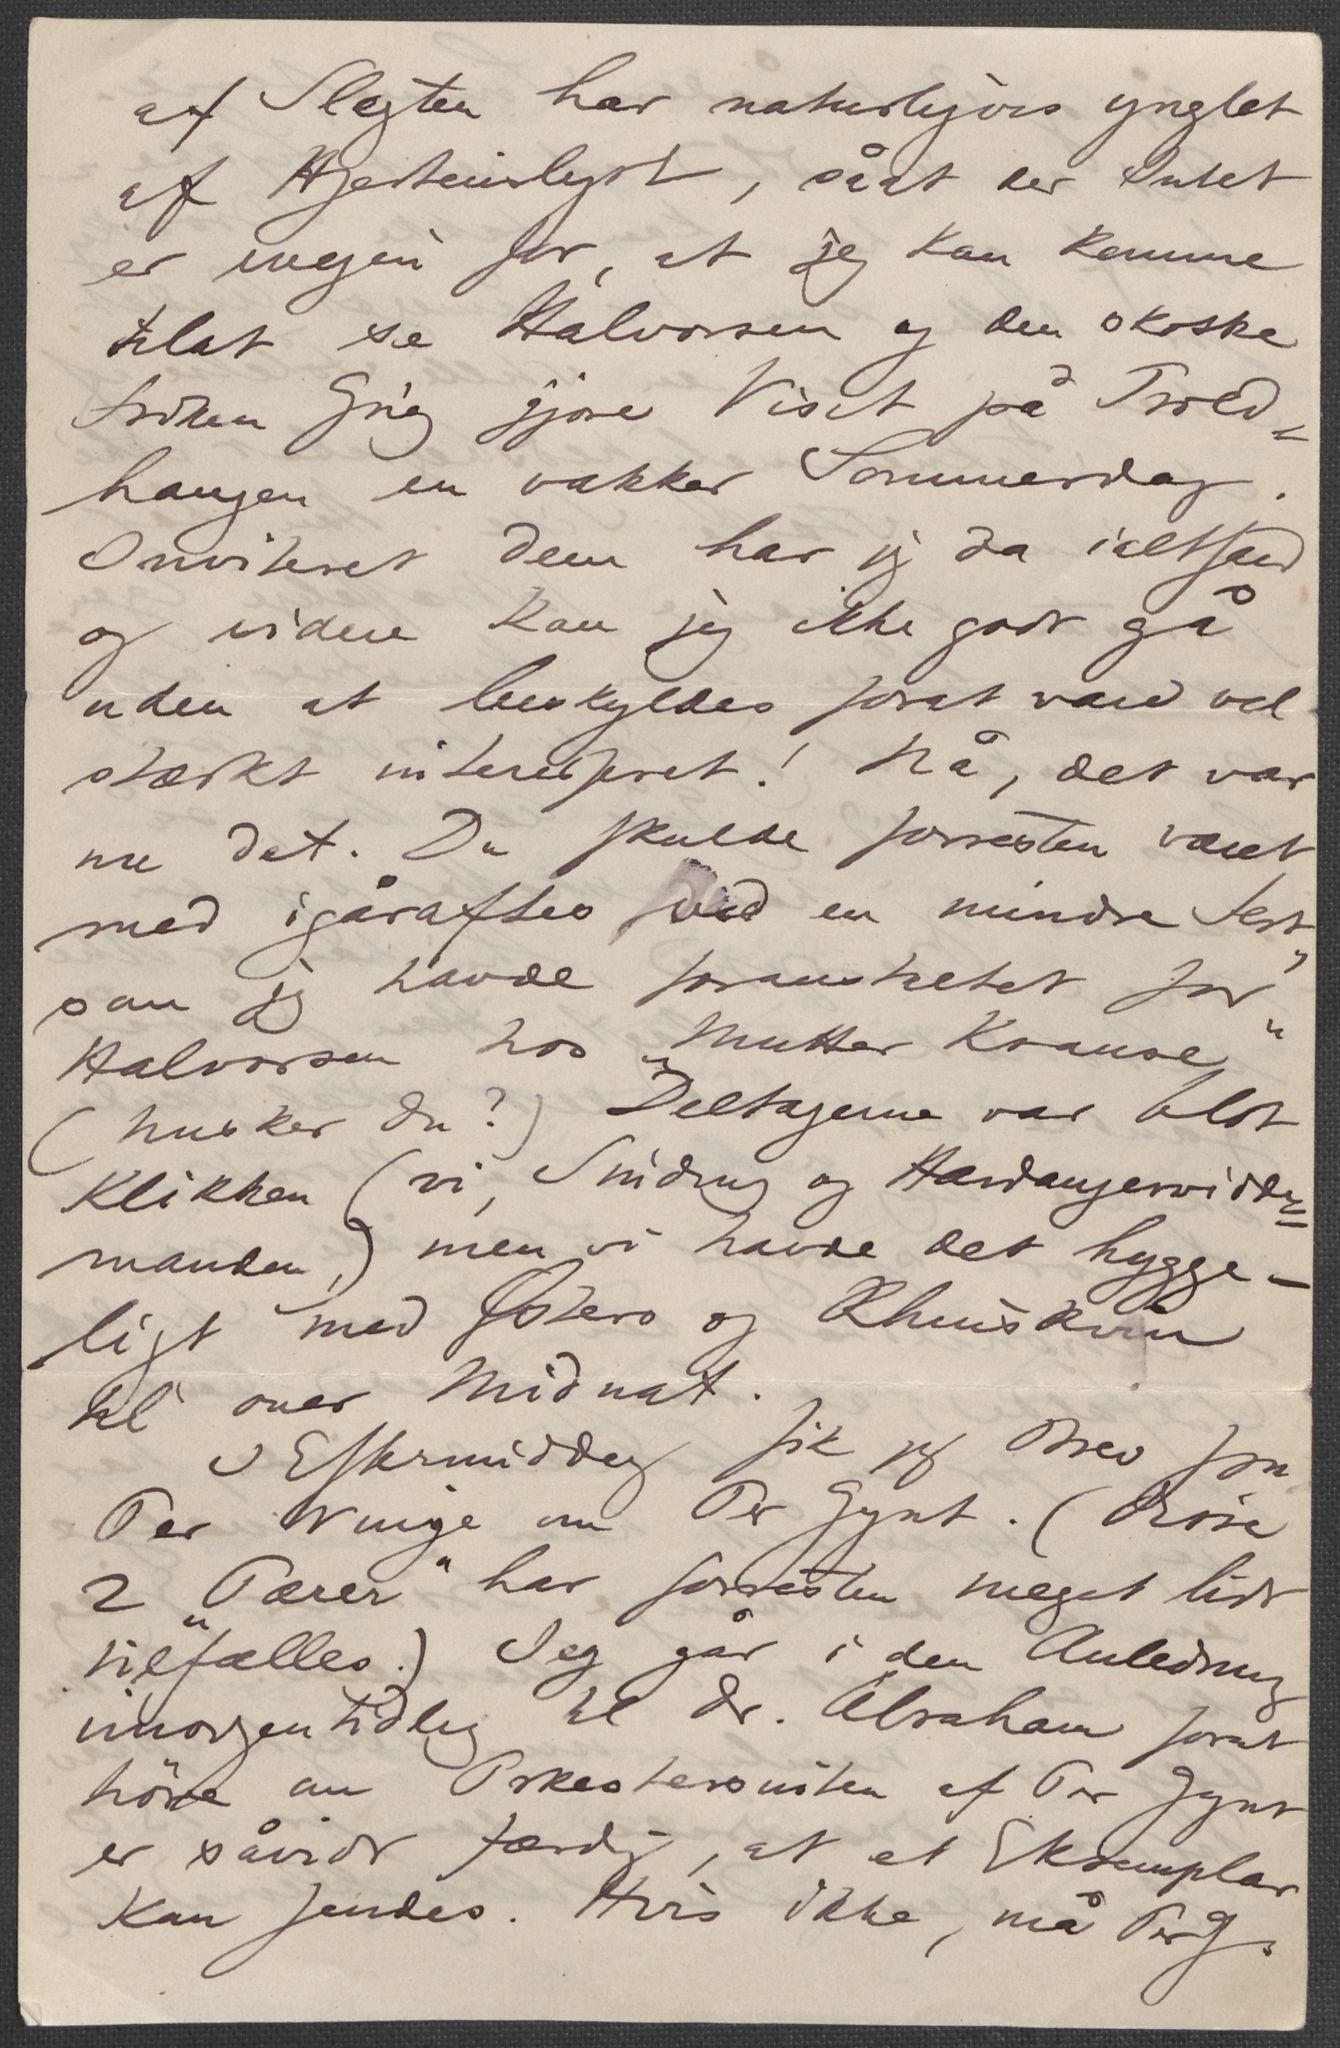 af Slegten har naturligvis ynglet
af Hjertenslyst, såat der Intet
er ivegen for, at jeg kan komme
tilat se Halvorsen og den skotske
Frøken Grieg gjøre Visit på Trold-
haugen en vakker Sommerdag.
Inviteret dem har jeg da ialtfald
og videre kan jeg ikke godt gå
uden at beskyldes forat være vel
stærkt interesseret! Nå, det var
nu det. Du skulde forresten været
med igåraftes ved en mindre Fest,
som jeg havde foranstaltet for
Halvorsen hos „Mutter Krause"
(husker du?) Deltagerne var blot
Klikken (vi, Sinding og Hardangervidde-
manden,) men vi havde det hygge-
ligt med Østers og Rhinskvin
til over Midnat.
I Eftermiddag fik jeg Brev fra
Per Winge om Per Gynt. (Disse
2 „Pærer" har forresten meget lidt
tilfælles.) Jeg går i den Anledning
imorgentidlig til Dr. Abraham forat
høre om Orkestersuiten af Per Gynt
er såvidt færdig, at et Exemplar
kan sendes. Hvis ikke, må Per G.